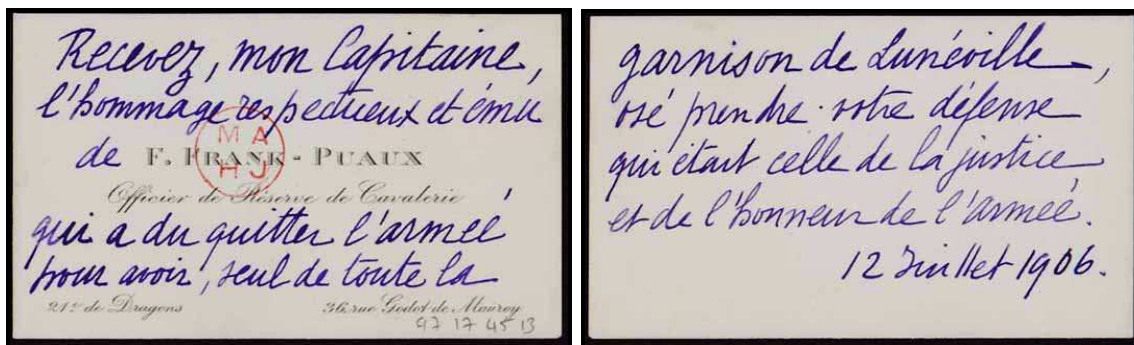 Recevez, mon Capitaine,
l'hommage respectueux et ému
de F. FRANK - PUAUX
MA
HJ
Officier de Réserve de Cavalerie
qui a du quitter l'armée
pour avoir, seul de toute la
21e de Dragons 36, rue Godot de Mauroy
97 17 45 13
garnison de Lunéville,
osé prendre votre défense
qui était celle de la justice
et de l'honneur de l'armée.
12 Juillet 1906.